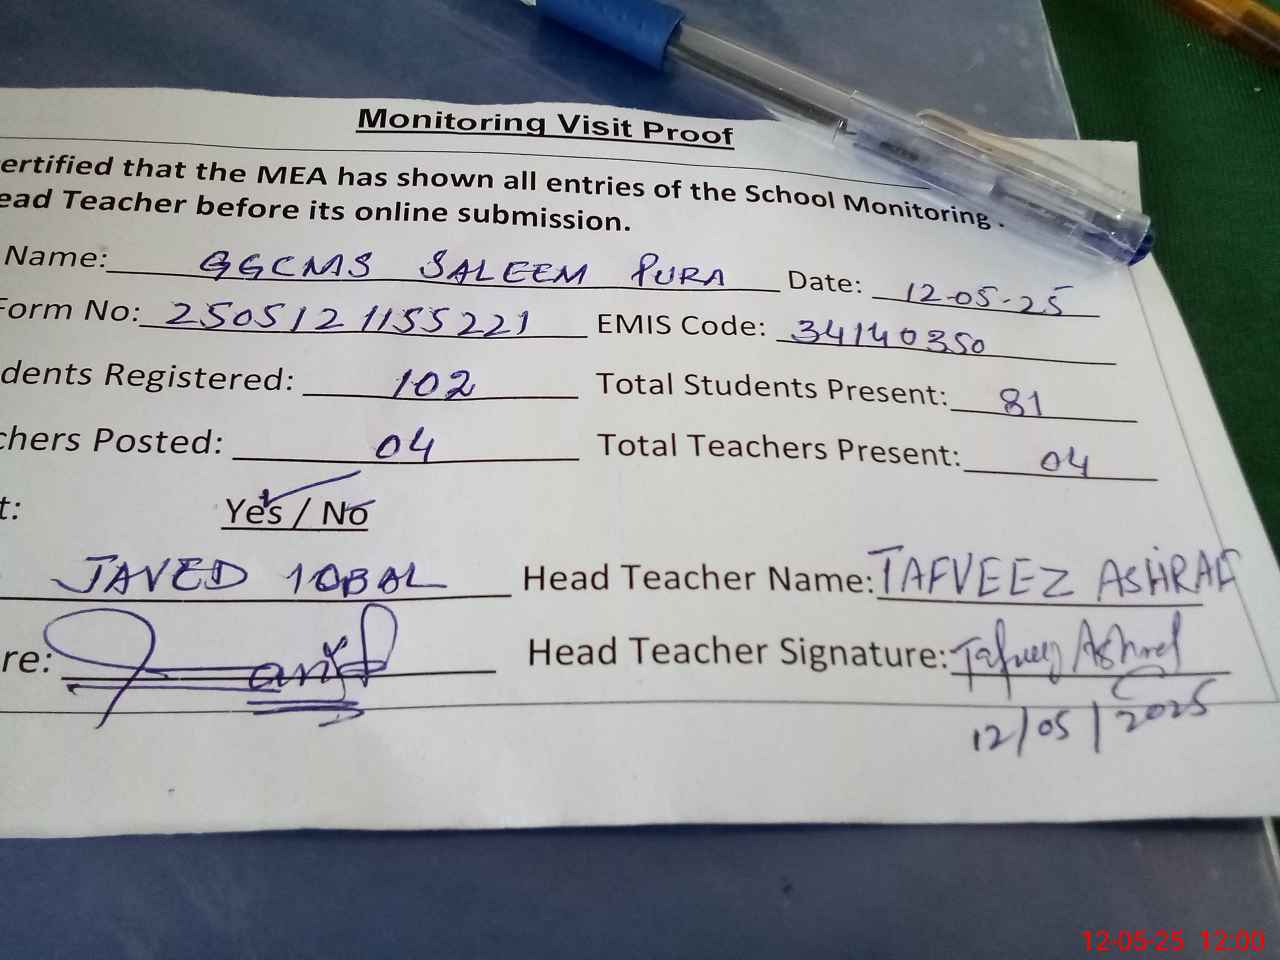 Monitoring Visit Proof
ertified that the MEA has shown all entries of the School Monitoring
ead Teacher before its online submission.
Name: GGCMS SALEEM PURA Date: 12-05-25
Form No: 2505121155221 EMIS Code: 34140350
dents Registered: 102 Total Students Present: 81
chers Posted: 04 Total Teachers Present: 04
t: Yes / No
JAVED IQBAL Head Teacher Name: TAFVEEZ ASHRAF
re: Head Teacher Signature: Tafveez Ashraf
12/05/2025
12-05-25 12:00